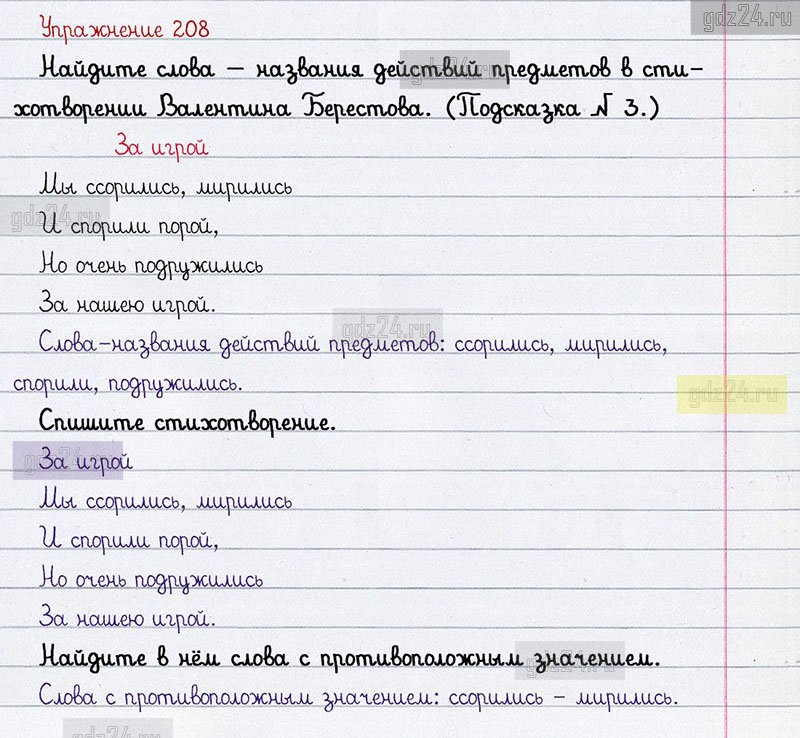 gdz24.ru
Упражнение 208
Найдите слова – названия действий предметов в сти-
хотворении Валентина Берестова. (Подсказка № 3.)
За игрой
Мы ссорились, мирились
gdz24.ru
И спорили порой,
Но очень подружились
За нашею игрой.
gdz24.ru
Слова-названия действий предметов: ссорились, мирились,
спорили, подружились.
gdz24.ru
Спишите стихотворение.
За игрой
Мы ссорились, мирились
И спорили порой,
Но очень подружились
За нашею игрой.
Найдите в нём слова с противоположным значением.
Слова с противоположным значением: ссорились – мирились.
gdz24.ru